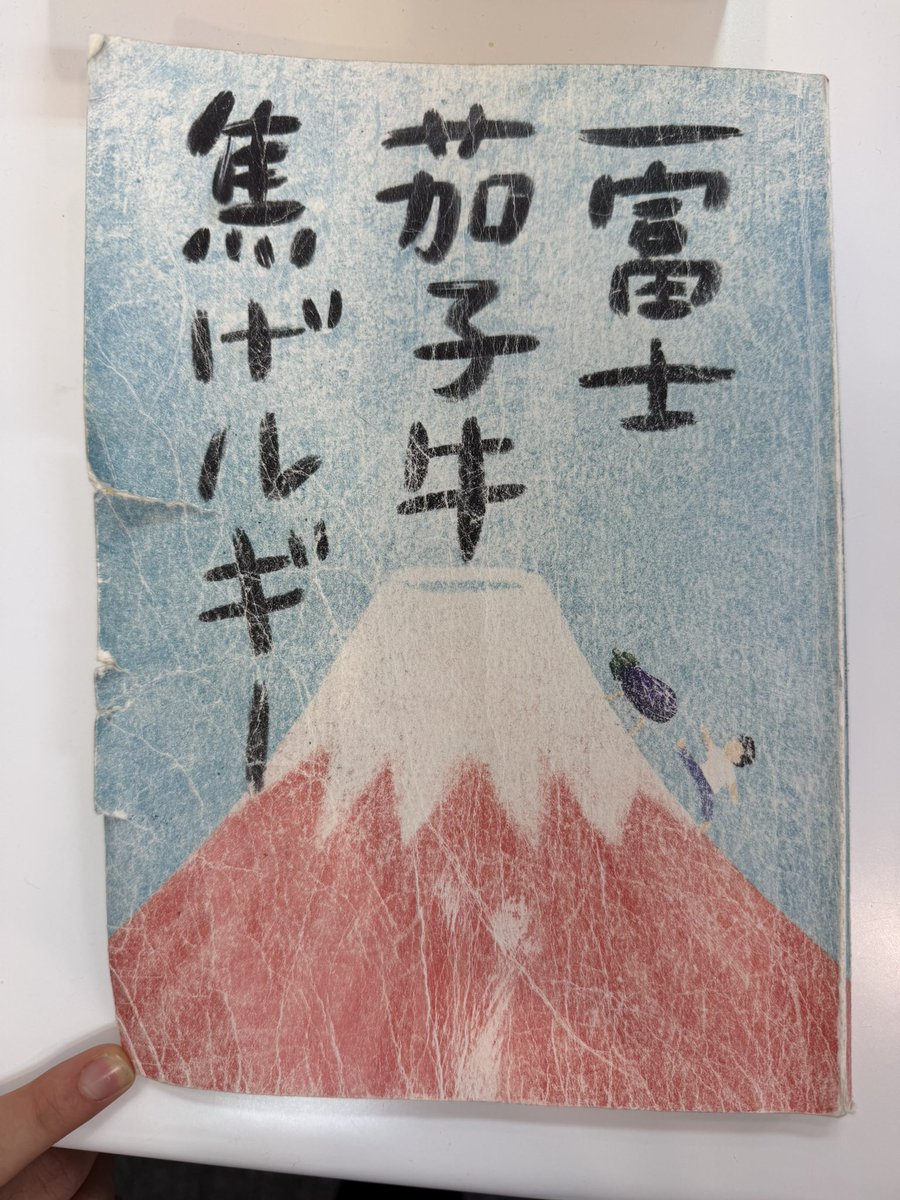 一富士
茄子牛
焦げルギー